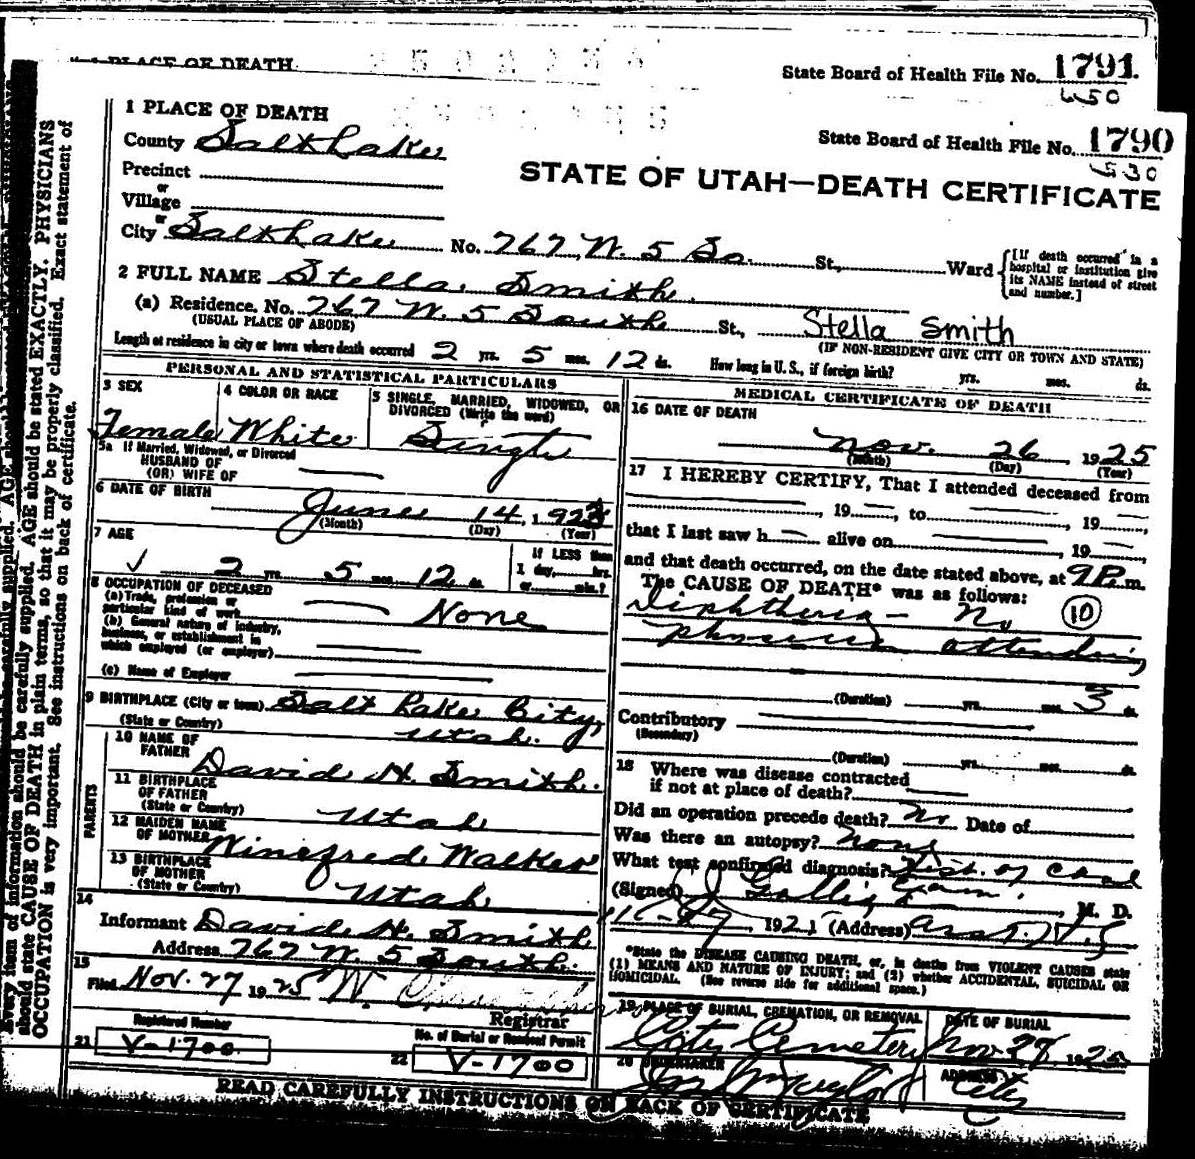 1 PLACE OF DEATH
State Board of Health File No. 1791
1 PLACE OF DEATH
State Board of Health File No. 1790
County Salt Lake
STATE OF UTAH—DEATH CERTIFICATE
Precinct
or
Village
or
City Salt Lake No. 767 W. 5 So. St., Ward
[If death occurred in a hospital or institution give its NAME instead of street and number.]
2 FULL NAME Stella Smith
(a) Residence. No. 767 W. 5 South St., Stella Smith
(USUAL PLACE OF ABODE) (IF NON-RESIDENT GIVE CITY OR TOWN AND STATE)
Length of residence in city or town where death occurred 2 yrs. 5 mos. 12 ds. How long in U. S., if foreign birth? yrs. mos. ds.
PERSONAL AND STATISTICAL PARTICULARS
3 SEX
Female
4 COLOR OR RACE
White
5 SINGLE, MARRIED, WIDOWED, OR DIVORCED (Write the word)
Single
5a If Married, Widowed, or Divorced
HUSBAND OF
(OR) WIFE OF
6 DATE OF BIRTH
June 14, 1923
(Month) (Day) (Year)
7 AGE
2 yrs. 5 mos. 12 ds.
If LESS than
1 day, hrs.
or min.?
8 OCCUPATION OF DECEASED
(a) Trade, profession or
particular kind of work
None
(b) General nature of industry,
business, or establishment in
which employed (or employer)
(c) Name of Employer
9 BIRTHPLACE (City or town) Salt Lake City,
(State or Country) Utah.
PARENTS
10 NAME OF
FATHER
David H. Smith.
11 BIRTHPLACE
OF FATHER
(State or Country) Utah
12 MAIDEN NAME
OF MOTHER
Winefred Walker
13 BIRTHPLACE
OF MOTHER
(State or Country) Utah
14
Informant David H. Smith
Address 767 W. 5 South.
15
Filed Nov. 27 1925
Registrar
Registered Number
21 V-1700
No. of Burial or Removal Permit
22 V-1700
MEDICAL CERTIFICATE OF DEATH
16 DATE OF DEATH
Nov. 26 1925
(Month) (Day) (Year)
17 I HEREBY CERTIFY, That I attended deceased from
, 19 , to , 19
that I last saw h alive on , 19
and that death occurred, on the date stated above, at 9 P. m.
The CAUSE OF DEATH* was as follows:
Diphtheria — No 10
physician attending
(Duration) yrs. mos. 3 ds.
Contributory
(Secondary)
(Duration) yrs. mos. ds.
18 Where was disease contracted
if not at place of death?
Did an operation precede death? No Date of
Was there an autopsy? None
What test confirmed diagnosis?
(Signed) , M. D.
(Address)
*State the DISEASE CAUSING DEATH, or, in deaths from VIOLENT CAUSES state
(1) MEANS AND NATURE OF INJURY; and (2) whether ACCIDENTAL, SUICIDAL OR
HOMICIDAL. (See reverse side for additional space.)
19 PLACE OF BURIAL, CREMATION, OR REMOVAL
City Cemetery
DATE OF BURIAL
Nov 27 1925
20 UNDERTAKER
ADDRESS
City
READ CAREFULLY INSTRUCTIONS ON BACK OF CERTIFICATE
Every item of information should be carefully supplied. AGE should be stated EXACTLY. PHYSICIANS
should state CAUSE OF DEATH in plain terms, so that it may be properly classified. Exact statement of
OCCUPATION is very important. See instructions on back of certificate.